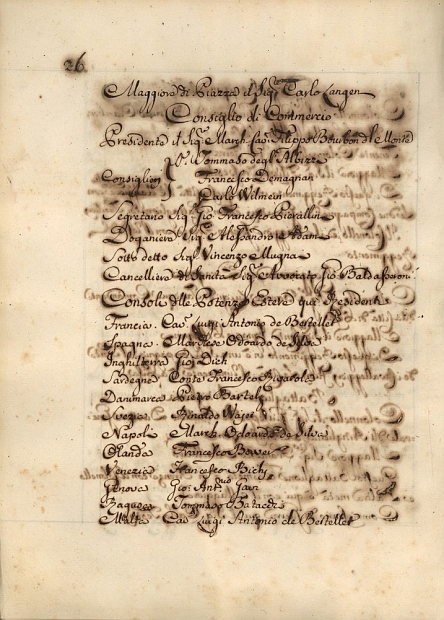 26
Maggiore di Piazza il Sig.r Carlo Langen
Consiglio di Commercio
Presidente il Sig.r March. Cav. Filippo Bourbon del Monte
Tommaso degl'Albizzi
Consiglieri Francesco Demagnan
Carlo Wilmein
Segretario Sig.r Gio Francesco Pierallini
Doganiere Sig.r Alessandro Adami
Sotto detto Sig.r Vincenzo Mugnai
Cancelliere di Sanità Sig.r Avvocato Gio Baldasseroni
Consoli delle Potenze Estere qui Residenti
Francia Cav. Luigi Antonio de Bertellet
Spagna Marchese Odoardo de Silva
Inghilterra Gio: Dick
Sardegna Conte Francesco
Danimarca Pietro Bartels
Svezia Rinaldo
Napoli March. Odoardo de Silva
Olanda Francesco Bower
Venezia Francesco Bichi
Genova Gio: Ant.
Ragusa Tommaso
Malta Cav. Luigi Antonio de Bertellet